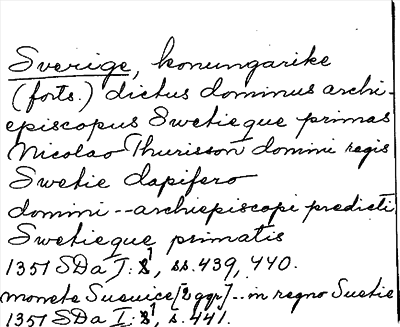 Sverige, konungarike
(forts.) dictus dominus archi-
episcopus Swetieque primas
Nicolao Thurisson domini regis
Swetie dapifero
domini -- archiepiscopi predicti
Swetieque primatis
1351 SDa I:1, ss. 439, 440.
monete Sueuice [2 ggr] -- in regno Suetie
1351 SDa I:1, s. 441.